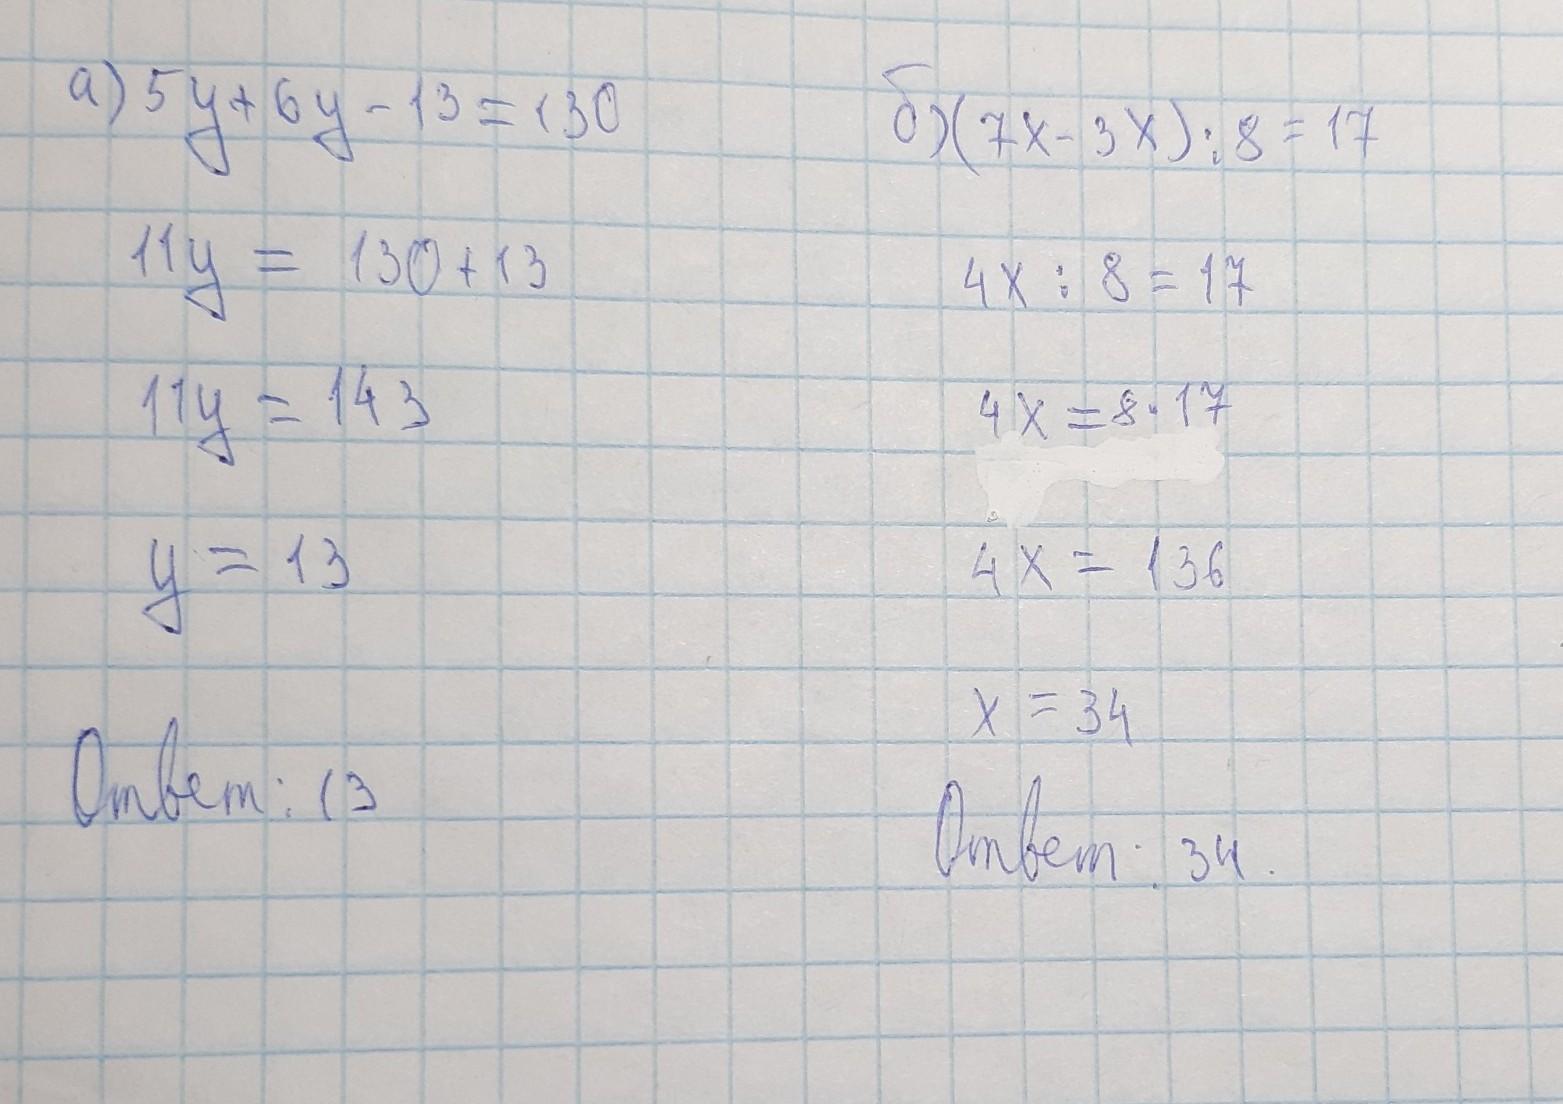 а) 5y + 6y - 13 = 130
11y = 130 + 13
11y = 143
y = 13
Ответ: 13
б) (7x - 3x) : 8 = 17
4x : 8 = 17
4x = 8 · 17
4x = 136
x = 34
Ответ: 34.